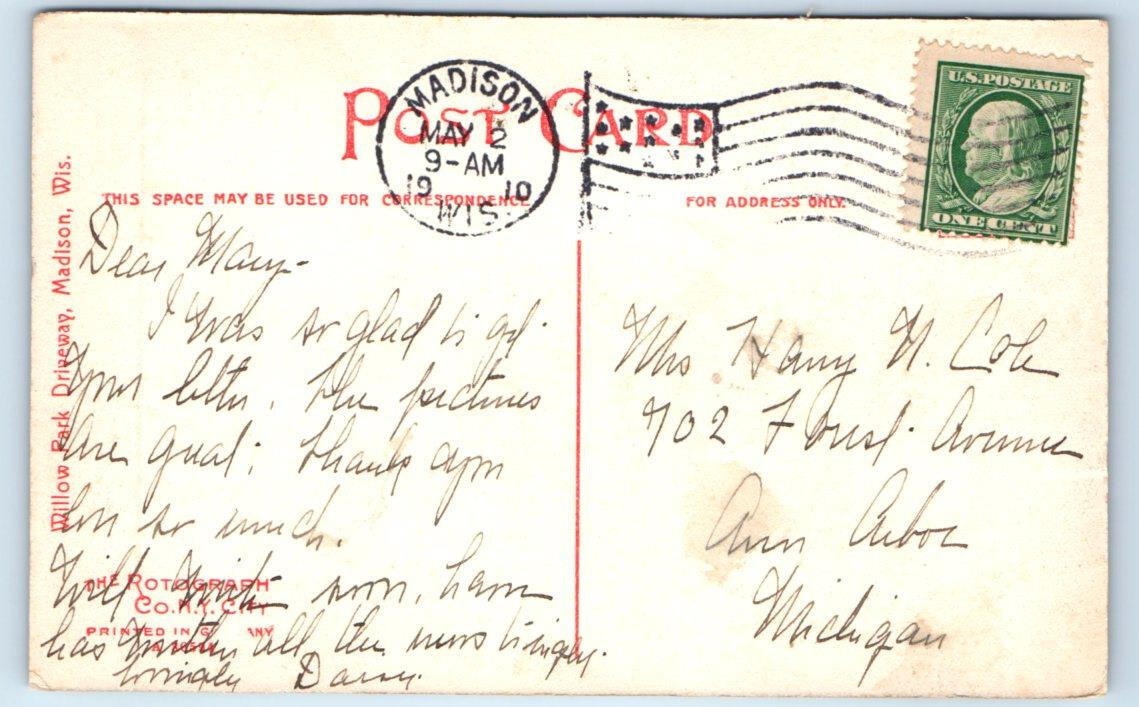 POST CARD
MADISON
MAY 2
9-AM
19 10
WIS.
U.S.POSTAGE
ONE CENT
THIS SPACE MAY BE USED FOR CORRESPONDENCE
FOR ADDRESS ONLY.
Willow Park Driveway, Madison, Wis.
Dear Mary-
I was so glad to get
your letter. The pictures
are great; thank
so much.
Will write soon,
has written all the news
lovingly
THE ROTOGRAPH
CO. N.Y. CITY
PRINTED IN G NY
Mrs Harry N. Cole
702 Forest Avenue
Ann Arbor
Michigan